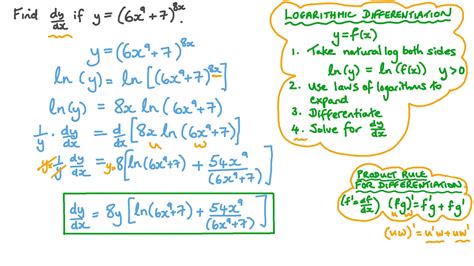 Find dy/dx if y = (6x⁹+7)^8x.
y = (6x⁹+7)^8x
ln(y) = ln[(6x⁹+7)^8x]
ln(y) = 8x ln(6x⁹+7)
1/y · dy/dx = d/dx [8x ln(6x⁹+7)]
u w
y· 1/y · dy/dx = y· 8[ln(6x⁹+7) + 54x⁹/(6x⁹+7)]
dy/dx = 8y[ln(6x⁹+7) + 54x⁹/(6x⁹+7)]
LOGARITHMIC DIFFERENTIATION
y = f(x)
1. Take natural log both sides
ln(y) = ln(f(x)) y>0
2. Use laws of logarithms to
expand
3. Differentiate
4. Solve for dy/dx
PRODUCT RULE
FOR DIFFERENTIATION
(f' = df/dx) (fg)' = f'g + fg'
(uw)' = u'w + uw'